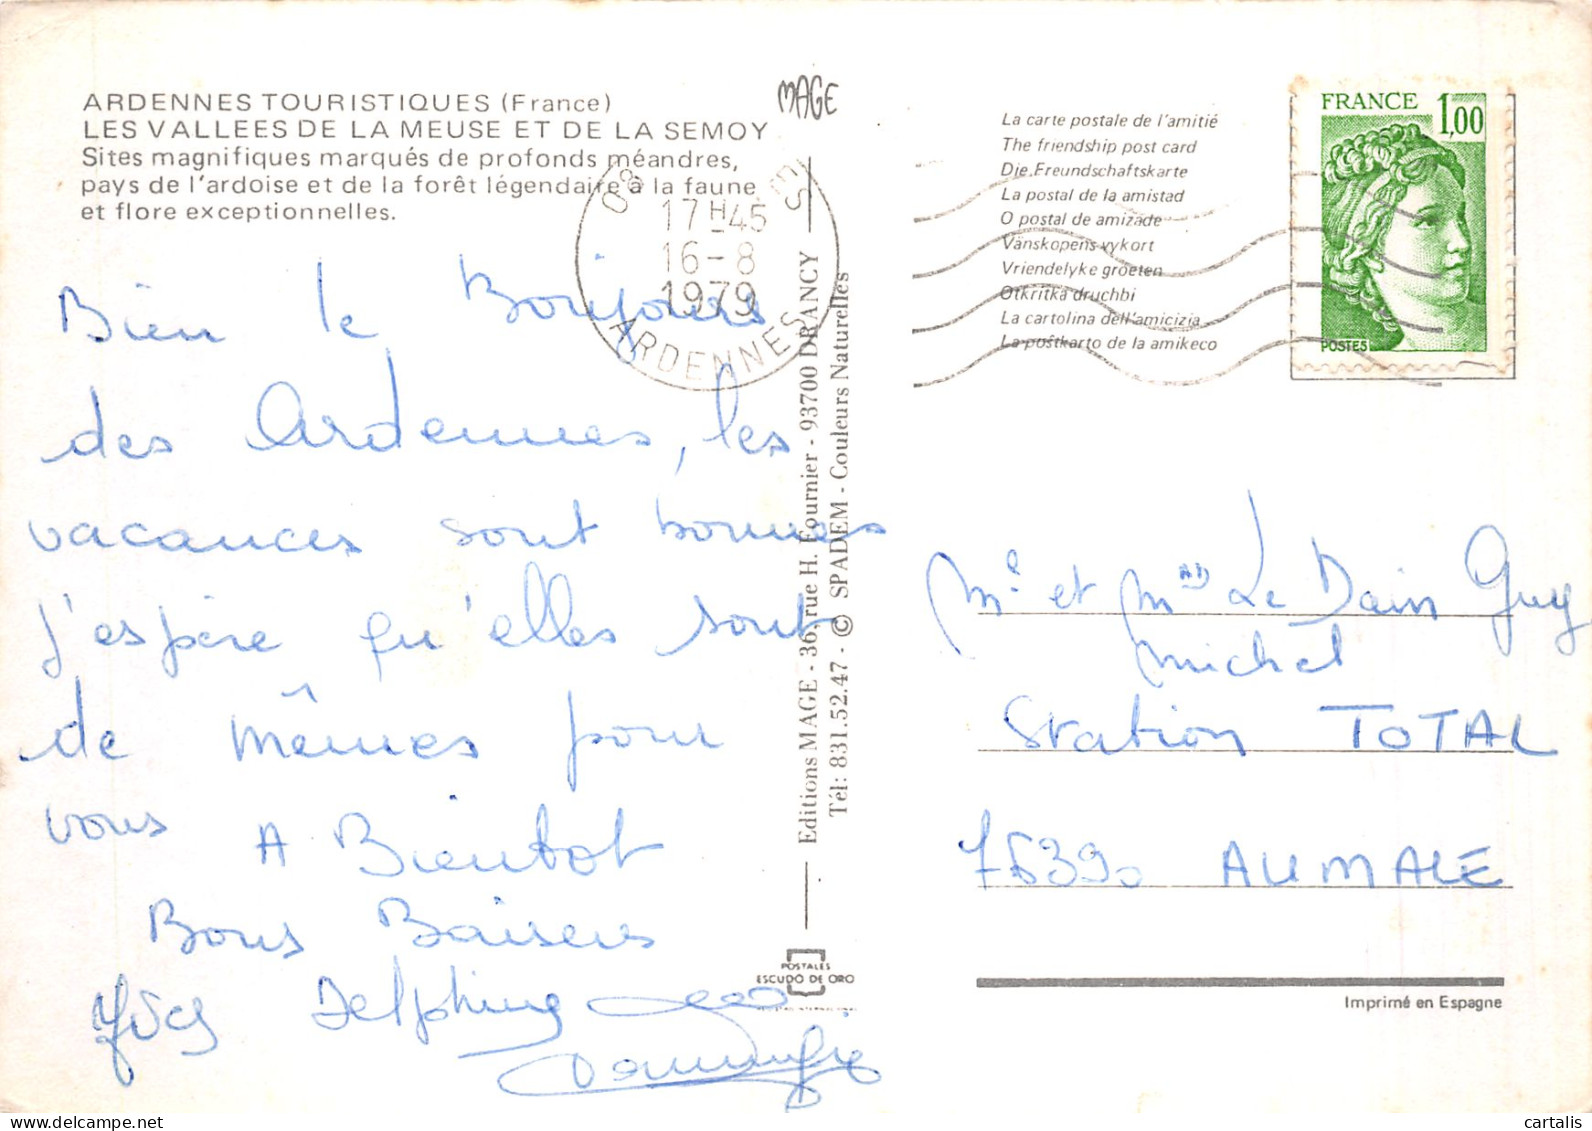 ARDENNES TOURISTIQUES (France)
LES VALLEES DE LA MEUSE ET DE LA SEMOY
Sites magnifiques marqués de profonds méandres,
pays de l'ardoise et de la forêt légendaire à la faune
et flore exceptionnelles.
MAGE
17H45
16-8
1979
ARDENNES
Bien le Bonjours
des Ardennes, les
vacances sont bonnes
j'espère qu'elles sont
de mêmes pour
vous
A Bientot
Bons Baisers
Delphine
Editions MAGE - 36, rue H. Fournier - 93700 DRANCY
Tél: 831.52.47 - © SPADEM - Couleurs Naturelles
POSTALES
ESCUDO DE ORO
La carte postale de l'amitié
The friendship post card
Die Freundschaftskarte
La postal de la amistad
O postal de amizade
Vänskopens vykort
Vriendelyke groeten
Otkritka druchbi
La cartolina dell'amicizia
La postkarto de la amikeco
FRANCE 1,00
POSTES
Mr et Mad Le Dain Guy
Michel
Station TOTAL
76390 AUMALE
Imprimé en Espagne
cartalis
delcampe.net